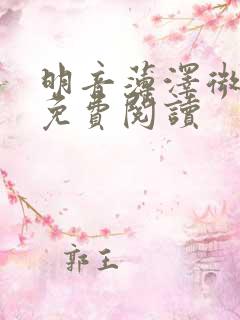 明音薄澤微
免費閱讀
郭王